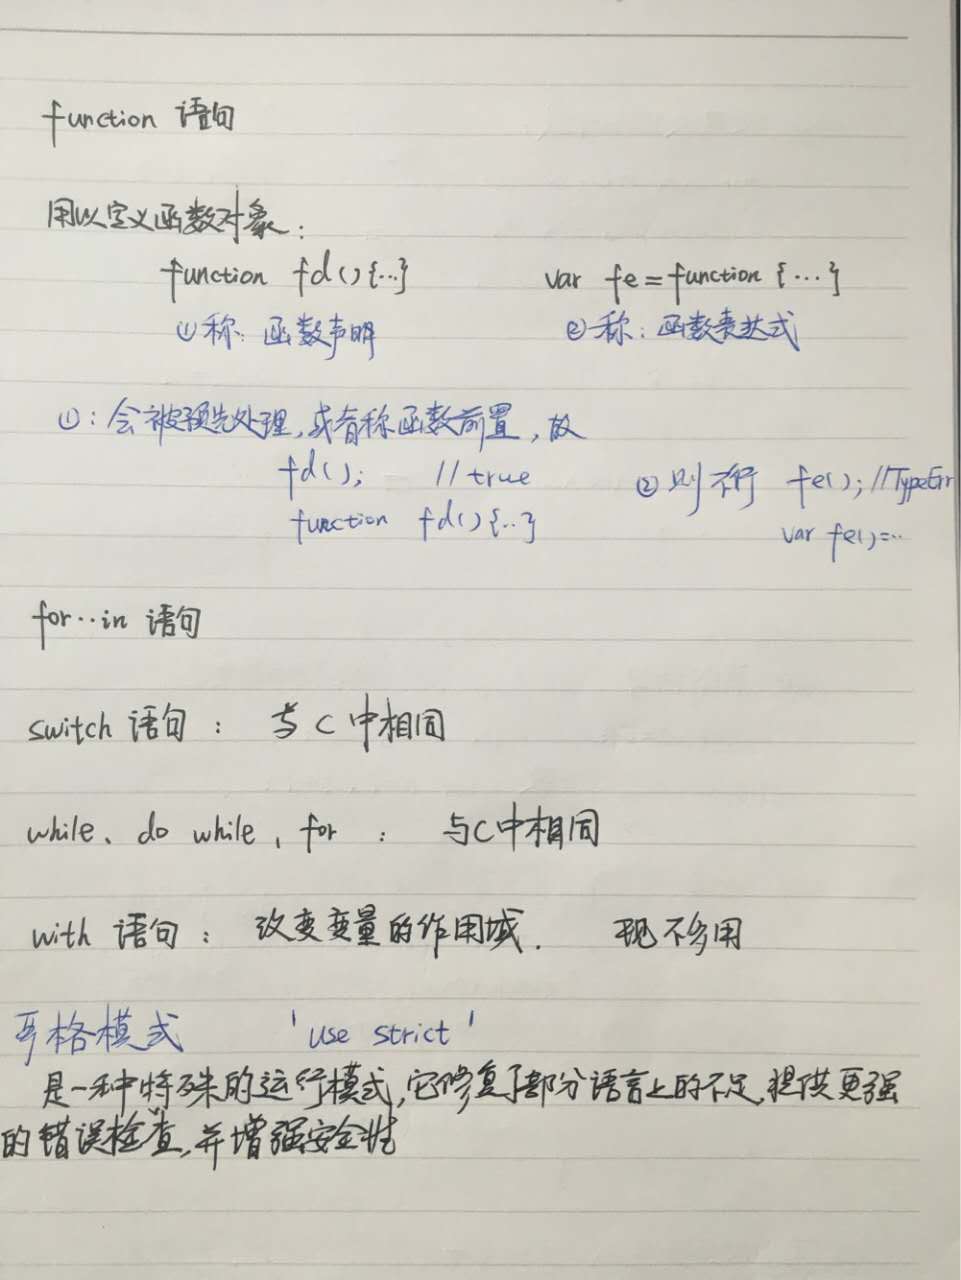 function 语句
用以定义函数对象：
function fd(){...} var fe=function {...}
①称：函数声明 ②称：函数表达式
①：会被预先处理,或者称函数前置,故
fd(); //true ②则不行 fe(); //TypeErr
function fd(){..} var fe()=...
for..in 语句
switch 语句： 与C中相同
while、do while，for ： 与C中相同
with 语句： 改变变量的作用域. 现不多用
严格模式 'use strict'
是一种特殊的运行模式,它修复了部分语言上的不足,提供更强
的错误检查,并增强安全性